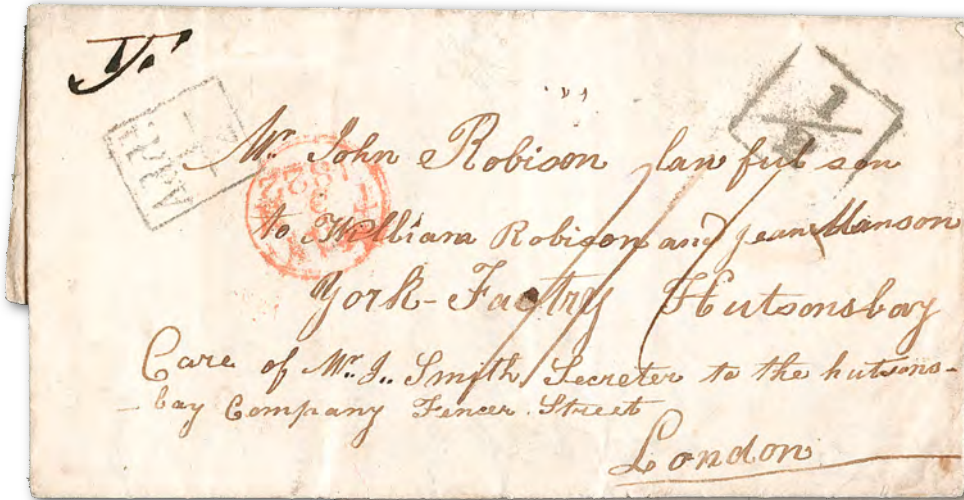 1/2
Mr. John Robison lawful son
to William Robison and Jean Manson
York-Factry Hutsonsbay
Care of Mr. J.. Smith Secreter to the hutsons-
-bay Company Fencer Street
London
1822